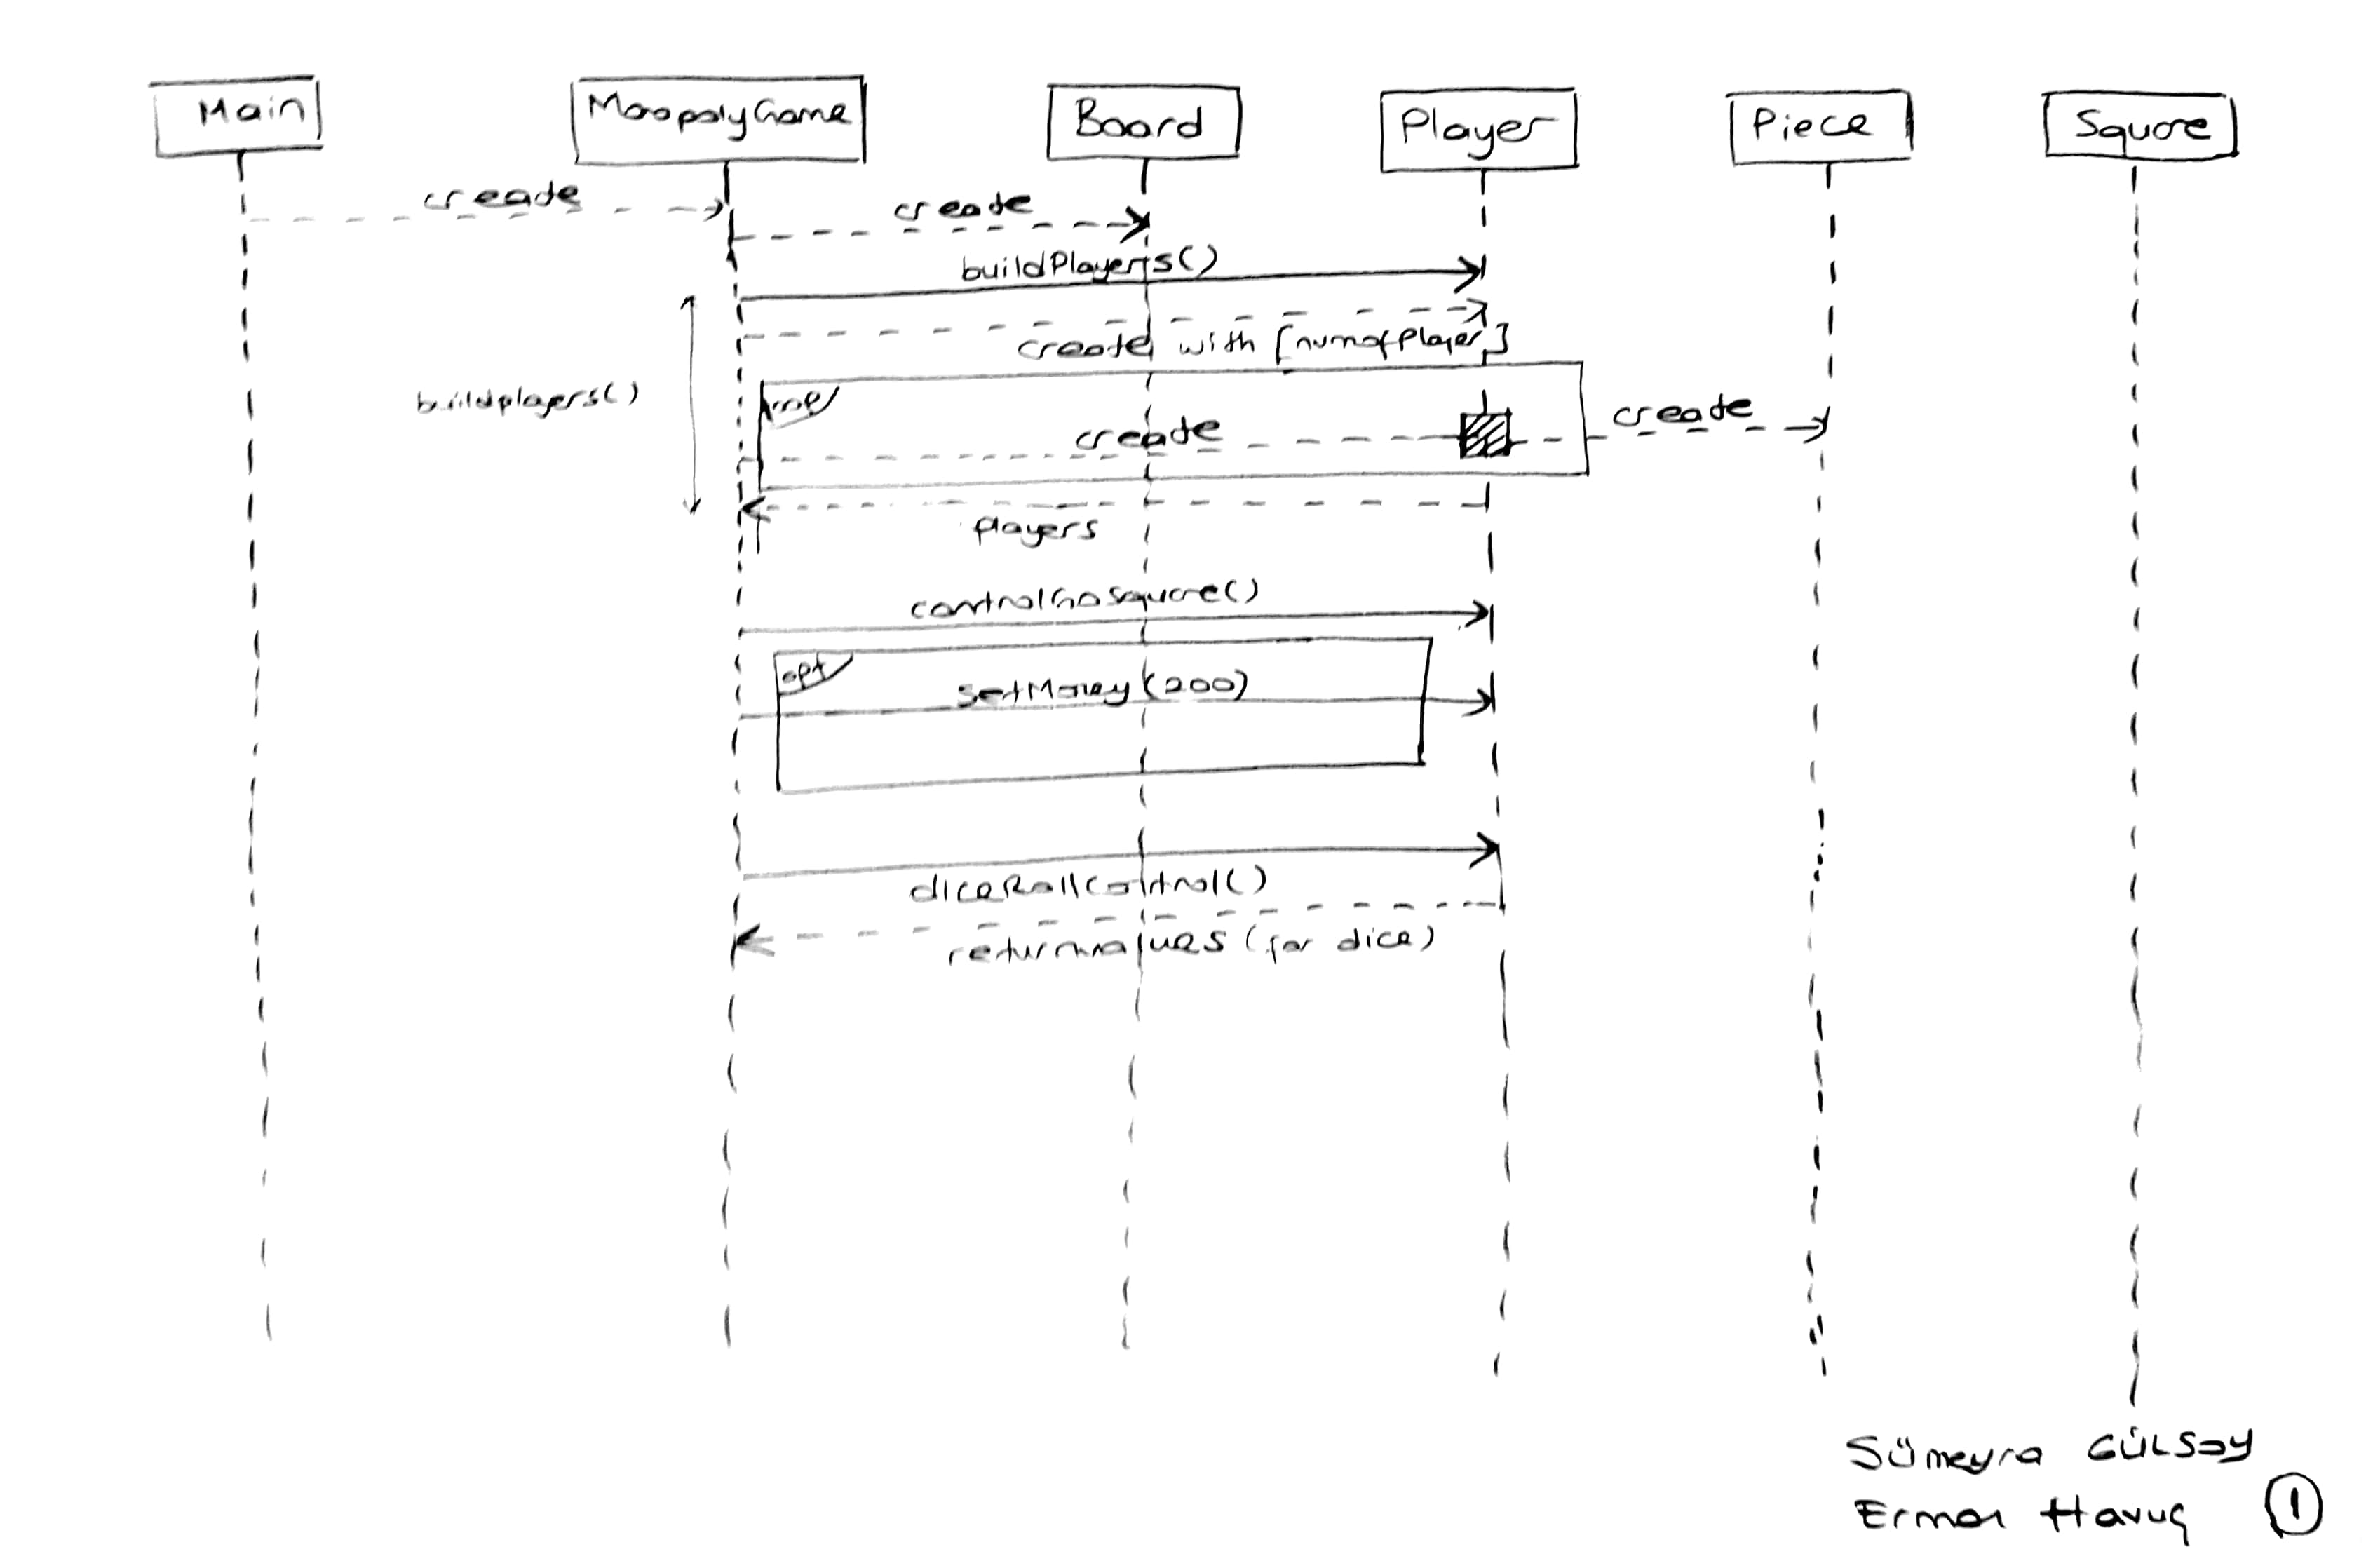 Main
MonopolyGame
Board
Player
Piece
Square
create
create
buildPlayers()
create with [numofPlayer]
buildplayers()
loop
create
create
players
controlGoSquare()
opt
setMoney(200)
diceRollControl()
returnvalues (for dice)
Sümeyra GÜLSOY
Erman Havuç
1